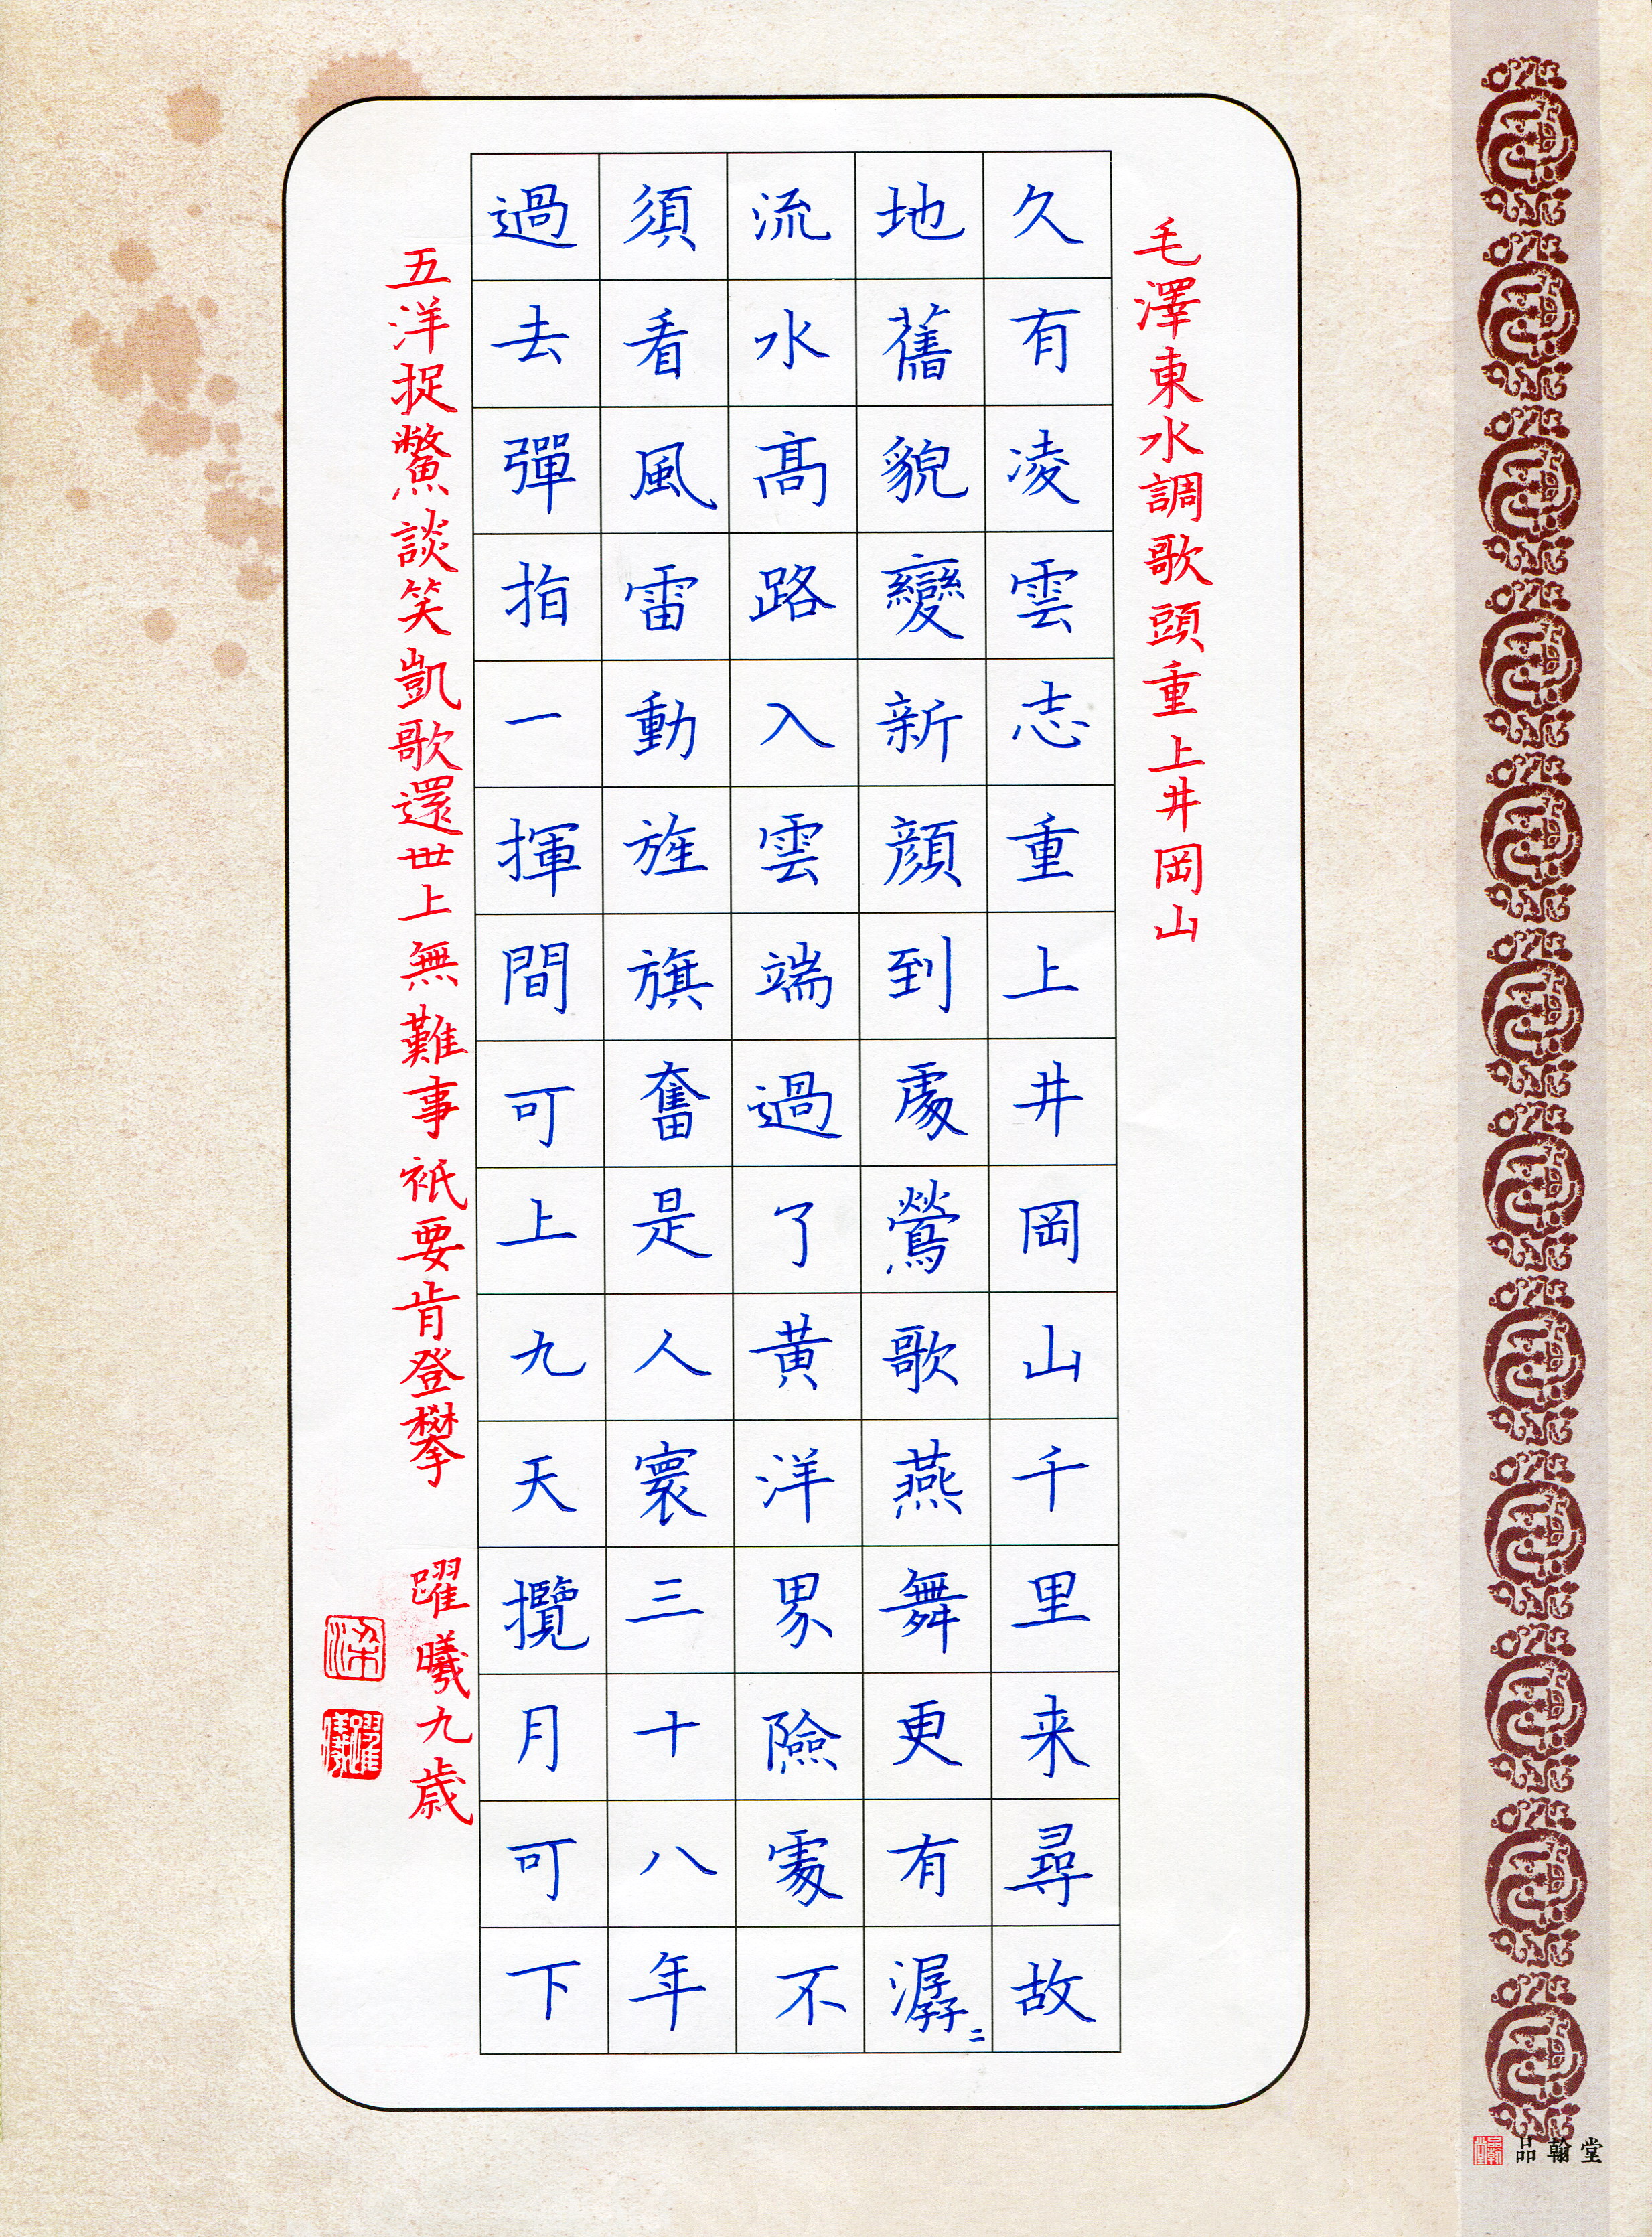 毛澤東水調歌頭重上井岡山
久有凌雲志重上井岡山千里来尋故
地舊貌變新顔到處鶯歌燕舞更有潺〻
流水高路入雲端過了黄洋界險處不
須看風雷動旌旗奮是人寰三十八年
過去彈指一揮間可上九天攬月可下
五洋捉鱉談笑凱歌還世上無難事衹要肯登攀
躍曦九歳
梁
品翰堂